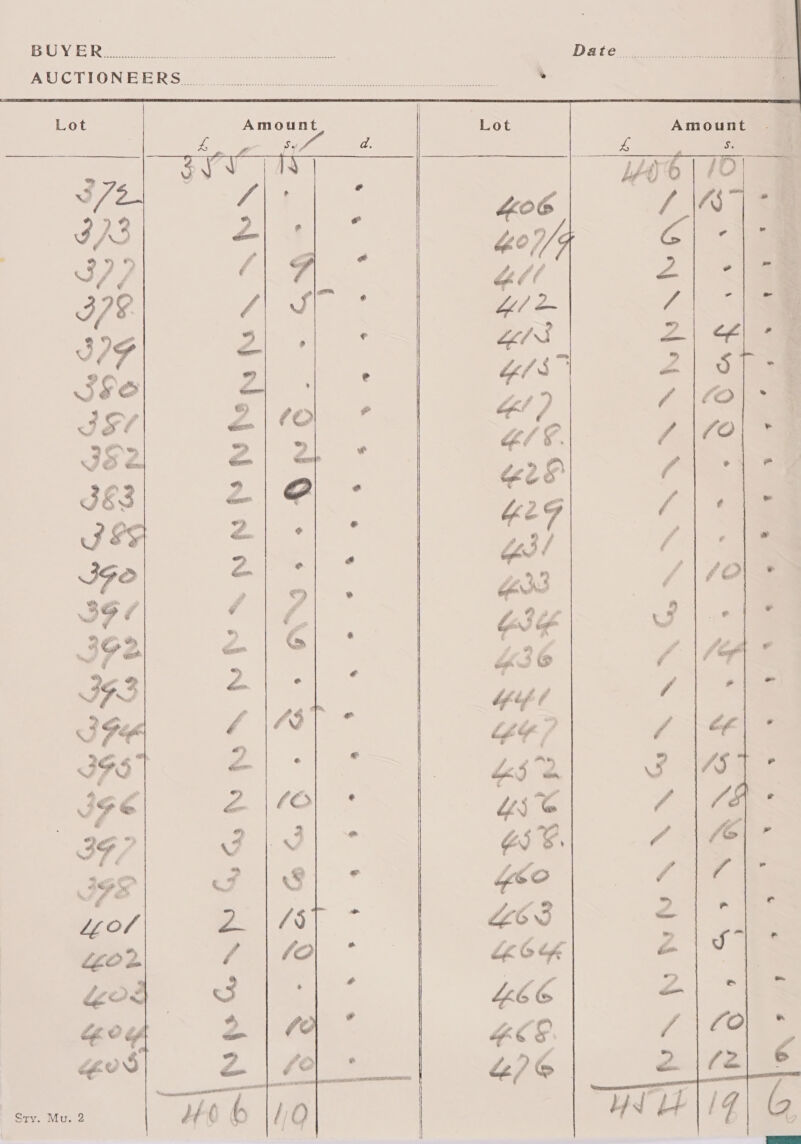 BUYER Date
AUCTIONEERS
Lot Amount Lot Amount
£ s. d. £ s.
355 15 406 10
372 1 . . 406 1 15 -
373 2 . . 407/9 6 - -
377 1 9 . 411 2 - -
378 1 5 . 412 1 - -
379 2 . . 413 2 4 -
380 2 . . 415 2 5 -
381 2 10 . 417 1 10 -
382 2 2 . 418 1 10 -
383 2 0 . 428 1 - -
389 2 . . 429 1 - -
390 2 . . 431 1 - -
391 1 7 . 433 1 10 -
392 2 6 . 434 3 - -
393 2 . . 436 1 14 -
394 1 15 . 441 1 - -
395 2 . . 447 1 4 -
396 2 10 . 452 3 15 -
397 3 3 . 456 1 18 -
398 3 3 . 458 1 16 -
401 2 15 . 460 1 1 -
402 1 10 . 463 2 - -
403 3 . . 464 2 5 -
404 2 10 . 466 2 - -
405 2 10 . 468 1 10 -
476 2 12 6
406 10 454 19 6
Sty. Mu. 2